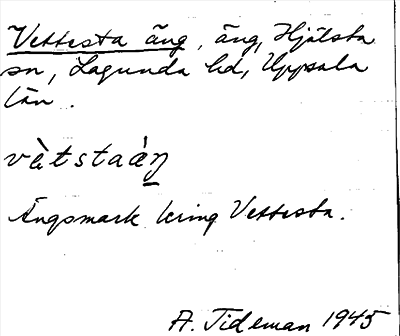 Vettesta äng, äng, Hjälsta
sn, Lagunda hd, Uppsala
län.
vètstaàŋ
Ängsmark kring Vettesta.
A. Tideman 1945